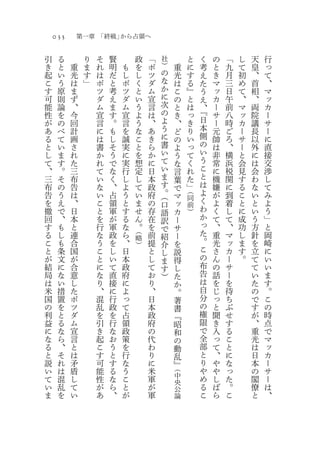 033　第一章　「終戦」から占領へ
行って、マッカーサーに直接交渉してみよう」と岡崎にいいます。この時点でマッカーサーは、
天皇、首相、両院議長以外には会わないという方針を立てていたのですが、重光は日本の閣僚と
して初めて、マッカーサーと会見することに成功します。
「九月三日午前八時ごろ、横浜税関に到着して、マッカーサーを待ちぶせすることになった。こ
のときマッカーサー元帥は非常に機嫌がよくて、重光さんの話をじっと聞き入って、ややしばら
く考えたうえ、『日本側のいうことはよくわかった。この布告は自分の権限で全部とりやめるこ
とにする』とはっきりいってくれた」（同前）
　重光はこのとき、どのような言葉でマッカーサーを説得したか。著書『昭和の動乱』（中央公論
社）のなかに次のように書いています。（口語訳で紹介します）
「ポツダム宣言は、あきらかに日本政府の存在を前提としており、日本政府の代わりに米軍が軍
政をしくというようなことを想定していません。（略）
　もしポツダム宣言を誠実に実行しようとするなら、日本政府によって占領政策を行なうことが
賢明だと考えます。もしそうでなく、占領軍が軍政をしいて直接に行政を行なおうとするなら、
それはポツダム宣言には書かれていないことを行なうことになり、混乱を引き起こす可能性があ
ります」
　重光はまず、今回計画された三布告は、日本と連合国が合意したポツダム宣言とは矛盾してい
るという原則論をのべています。そのうえで、もしも条文にない措置をとるなら、それは混乱を
引き起こす可能性があるとして、三布告を撤回することが結局は米国の利益になると説いていま